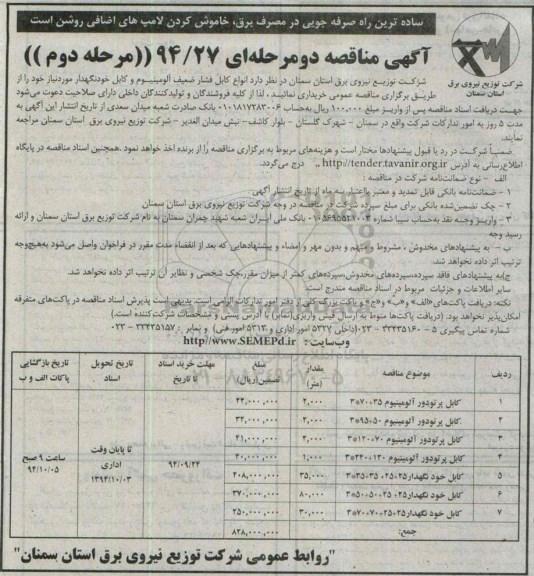 ساده ترین راه صرفه جویی در مصرف برق، خاموش کردن لامپ های اضافی روشن است
آگهی مناقصه دومرحله‌ای ۹۴/۲۷ ((مرحله دوم))
شرکت توزیع نیروی برق
استان سمنان
شرکت توزیع نیروی برق استان سمنان در نظر دارد انواع کابل فشار ضعیف آلومینیوم و کابل خودنگهدار موردنیاز خود را از
طریق برگزاری مناقصه عمومی خریداری نمائیند، لذا از کلیه فروشندگان و تولیدکنندگان داخلی دارای صلاحیت دعوت می‌شود
جهت دریافت اسناد مناقصه پس از واریز مبلغ ۱۰۰،۰۰۰ ریال به‌حساب ۰۱۰۱۸۱۷۳۸۳۰۰۶ بانک صادرت شعبه میدان سعدی از تاریخ انتشار این آگهی به
مدت ۵ روز به امور تدارکات شرکت واقع در سمنان - شهرک گلستان - بلوار کاشف- نبش میدان الغدیر - شرکت توزیع نیروی برق استان سمنان مراجعه
نمایند.
ضمناً شرکت در رد یا قبول پیشنهادها مختار است و هزینه‌های مربوط به برگزاری مناقصه را از برنده اخذ خواهد نمود .همچنین اسناد مناقصه در پایگاه
اطلاع‌رسانی به آدرس http://tender.tavanir.org.ir درج می‌گردد.
الف - نوع ضمانت‌نامه شرکت در مناقصه :
۱ - ضمانت‌نامه بانکی قابل تمدید و معتبر بااعتبار سه ماه از تاریخ انتشار آگهی
۲ - چک تضمین‌شده بانکی برای مبلغ سپرده شرکت در مناقصه در وجه شرکت توزیع نیروی برق استان سمنان
۳ - واریز وجه نقد به‌حساب سیبا شماره ۰۱۰۵۶۹۵۵۴۷۰۰۳ بانک ملی ایران شعبه شهید چمران سمنان به نام شرکت توزیع برق استان سمنان و ارائه
رسید وجه
ب - به پیشنهادهای مخدوش ، مشروط و مبهم و بدون مهر و امضاء و پیشنهادهایی که بعد از انقضاء مدت مقرر در فراخوان واصل می‌شود به‌هیچ‌وجه
ترتیب اثر داده نخواهد شد.
ج)به پیشنهادهای فاقد سپرده،سپرده‌های مخدوش،سپرده‌های کمتر از میزان مقرر،چک شخصی و نظایر آن ترتیب اثر داده نخواهد شد.
سایر اطلاعات و جزئیات مربوط در اسناد مناقصه مندرج است.
نکته: دریافت پاکت‌های «الف» و «ب» و «ج» و پاکت بزرگ کلی از دفتر امور تدارکات الزامی است. بدیهی است پذیرش اسناد مناقصه در پاکت‌های متفرقه
امکان‌پذیر نخواهد بود: (دریافت پاکت‌ها منوط به ارسال فیش واریزی(نمابر) با آدرس پستی و مشخصات شرکت‌کننده است.)
شماره تماس پیگیری ۵ - ۳۳۴۳۵۱۶۰ - ۰۲۳(داخلی ۵۳۲۷ امور اداری و ۵۳۱۳ امور فنی) و نمابر : ۳۳۴۳۵۱۵۷ - ۰۲۳
وب‌سایت : http://www.SEMEPd.ir
ردیف | موضوع مناقصه | مقدار (متر) | مبلغ تضمین(ریال) | مهلت خرید اسناد تا تاریخ | تاریخ تحویل اسناد | تاریخ بازگشایی پاکات الف و ب
۱ | کابل پرتودور آلومینیوم ۳۵+۷۰*۳ | ۲،۰۰۰ | ۲۲،۰۰۰،۰۰۰ | ۹۴/۰۹/۲۴ | تا پایان وقت اداری ۱۳۹۴/۱۰/۰۳ | ساعت ۹ صبح ۹۴/۱۰/۰۵
۲ | کابل پرتودور آلومینیوم ۵۰+۹۵*۳ | ۲،۰۰۰ | ۳۲،۰۰۰،۰۰۰
۳ | کابل پرتودور آلومینیوم ۷۰+۱۲۰*۳ | ۲،۰۰۰ | ۴۱،۰۰۰،۰۰۰
۴ | کابل پرتودور آلومینیوم ۱۲۰+۲۴۰*۳ | ۱،۰۰۰ | ۴۰،۰۰۰،۰۰۰
۵ | کابل خود نگهدار۲۵+۲۵+۳۵+۳۵*۳ | ۳۵،۰۰۰ | ۲۰۸،۰۰۰،۰۰۰
۶ | کابل خود نگهدار۲۵+۲۵+۵۰+۵۰*۳ | ۸۰،۰۰۰ | ۳۷۰،۰۰۰،۰۰۰
۷ | کابل خود نگهدار۲۵+۲۵+۷۰+۷۰*۳ | ۳۰،۰۰۰ | ۲۵۰،۰۰۰،۰۰۰
جمع: | ۸۲۸،۰۰۰،۰۰۰
"روابط عمومی شرکت توزیع نیروی برق استان سمنان"